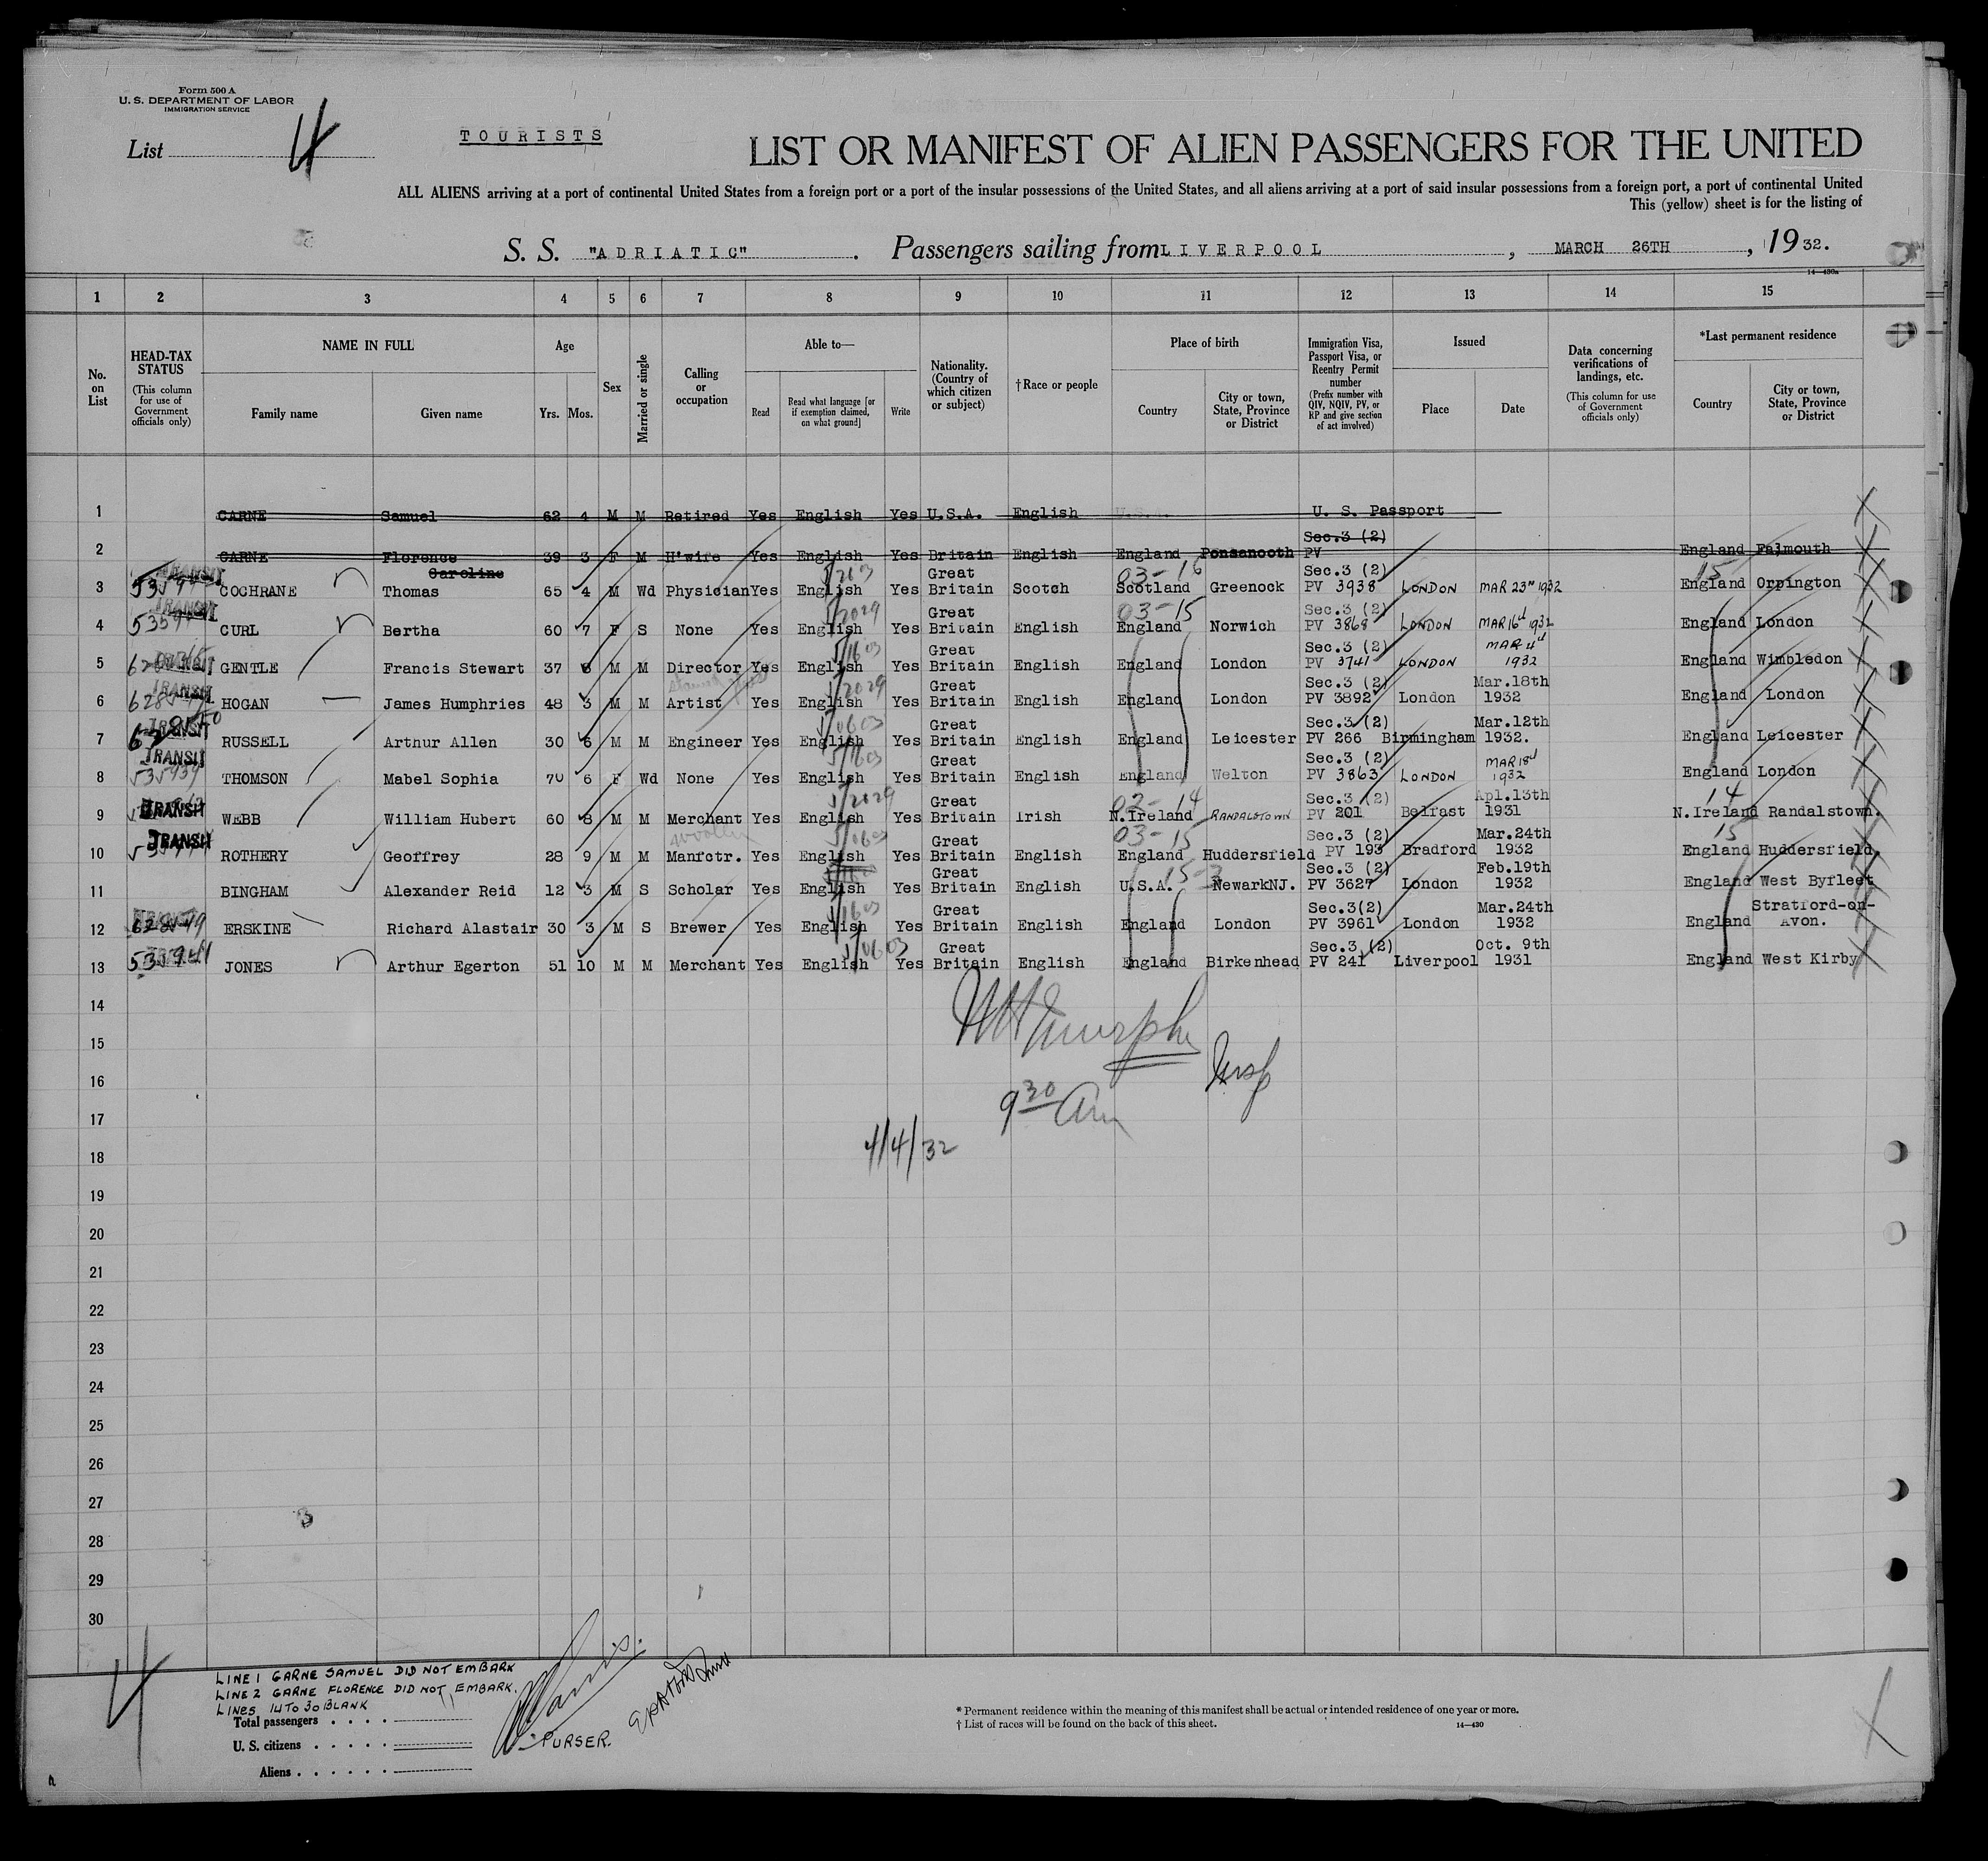 Form 500 A
U. S. DEPARTMENT OF LABOR
IMMIGRATION SERVICE
List 4
TOURISTS
LIST OR MANIFEST OF ALIEN PASSENGERS FOR THE UNITED
ALL ALIENS arriving at a port of continental United States from a foreign port or a port of the insular possessions of the United States, and all aliens arriving at a port of said insular possessions from a foreign port, a port of continental United
This (yellow) sheet is for the listing of
S. S. "ADRIATIC". Passengers sailing from LIVERPOOL, MARCH 26TH, 1932.
14-430a
1 2 3 4 5 6 7 8 9 10 11 12 13 14 15
No. on List
HEAD-TAX STATUS (This column for use of Government officials only)
NAME IN FULL Family name Given name
Age Yrs. Mos.
Sex
Married or single
Calling or occupation
Able to— Read Read what language [or if exemption claimed, on what ground] Write
Nationality. (Country of which citizen or subject)
†Race or people
Place of birth Country City or town, State, Province or District
Immigration Visa, Passport Visa, or Reentry Permit number (Prefix number with QIV, NQIV, PV, or RP and give section of act involved)
Issued Place Date
Data concerning verifications of landings, etc. (This column for use of Government officials only)
*Last permanent residence Country City or town, State, Province or District
1 GARNE Samuel 62 4 M M Retired Yes English Yes U.S.A. English U.S.A. U. S. Passport
2 GARNE Florence Caroline 39 3 F M H'wife Yes English Yes Britain English England Ponsanooth Sec.3 (2) PV England Falmouth
3 TRANSIT COCHRANE Thomas 65 4 M Wd Physician Yes English Yes Great Britain Scotch 03-16 Scotland Greenock Sec.3 (2) PV 3938 LONDON MAR 23rd 1932 15 England Orpington
4 TRANSIT CURL Bertha 60 7 F S None Yes English Yes Great Britain English 03-15 England Norwich Sec.3 (2) PV 3868 LONDON MAR 16th 1932 England London
5 TRANSIT GENTLE Francis Stewart 37 8 M M Director Yes English Yes Great Britain English England London Sec.3 (2) PV 3741 LONDON MAR 4th 1932 England Wimbledon
6 TRANSIT HOGAN James Humphries 48 3 M M Artist Yes English Yes Great Britain English England London Sec.3 (2) PV 3892 London Mar.18th 1932 England London
7 TRANSIT RUSSELL Arthur Allen 30 6 M M Engineer Yes English Yes Great Britain English England Leicester Sec.3 (2) PV 266 Birmingham Mar.12th 1932. England Leicester
8 TRANSIT 535939 THOMSON Mabel Sophia 70 6 F Wd None Yes English Yes Great Britain English England Welton Sec.3 (2) PV 3863 LONDON MAR 18th 1932 England London
9 TRANSIT WEBB William Hubert 60 8 M M Merchant Yes English Yes Great Britain Irish 02-14 N.Ireland RANDALSTOWN Sec.3 (2) PV 201 Belfast Apl.13th 1931 14 N.Ireland Randalstown.
10 TRANSIT ROTHERY Geoffrey 28 9 M M woollen Manfctr. Yes English Yes Great Britain English 03-15 England Huddersfield Sec.3 (2) PV 193 Bradford Mar.24th 1932 15 England Huddersfield.
11 BINGHAM Alexander Reid 12 3 M S Scholar Yes English Yes Great Britain English U.S.A. NewarkNJ. Sec.3 (2) PV 3627 London Feb.19th 1932 England West Byfleet
12 ERSKINE Richard Alastair 30 3 M S Brewer Yes English Yes Great Britain English England London Sec.3(2) PV 3961 London Mar.24th 1932 England Stratford-on-Avon.
13 535941 JONES Arthur Egerton 51 10 M M Merchant Yes English Yes Great Britain English England Birkenhead Sec.3 (2) PV 241 Liverpool Oct. 9th 1931 England West Kirby
14
15
16
17
18
19
20
21
22
23
24
25
26
27
28
29
30
Insp
9 30 Am
4/4/32
LINE 1 GARNE SAMUEL DID NOT EMBARK
LINE 2 GARNE FLORENCE DID NOT EMBARK.
LINES 14 TO 30 BLANK
Total passengers
U. S. citizens
Aliens
PURSER.
4
* Permanent residence within the meaning of this manifest shall be actual or intended residence of one year or more.
† List of races will be found on the back of this sheet.
14—430